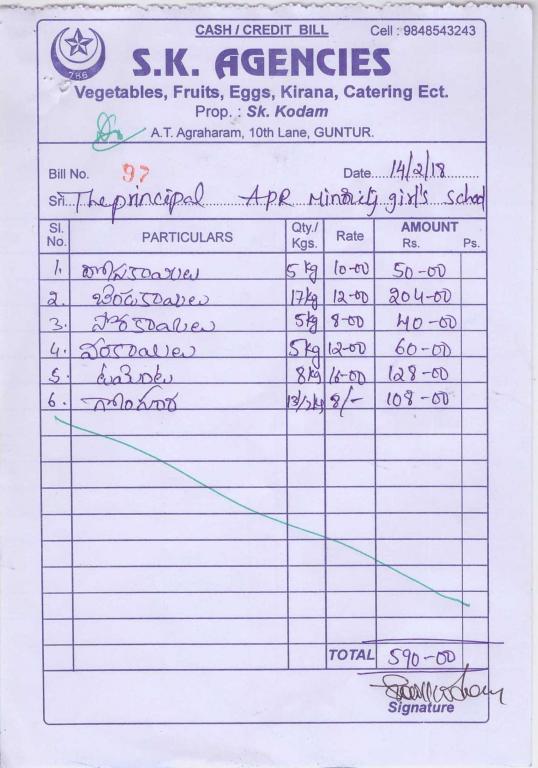 CASH / CREDIT BILL Cell : 9848543243
786
S.K. AGENCIES
Vegetables, Fruits, Eggs, Kirana, Catering Ect.
Prop. : Sk. Kodam
A.T. Agraharam, 10th Lane, GUNTUR.
Bill No. 97 Date 14/2/18
Sri. The principal APR Minority girl's school
Sl. No. PARTICULARS Qty./ Kgs. Rate AMOUNT Rs. Ps.
1. 5 kg 10-00 50-00
2. బెండకాయలు 17kg 12-00 204-00
3. 5kg 8-00 40-00
4. వంకాయలు 5kg 12-00 60-00
5. టమోటాలు 8kg 16-00 128-00
6. 8/- 108-00
TOTAL 590-00
Signature